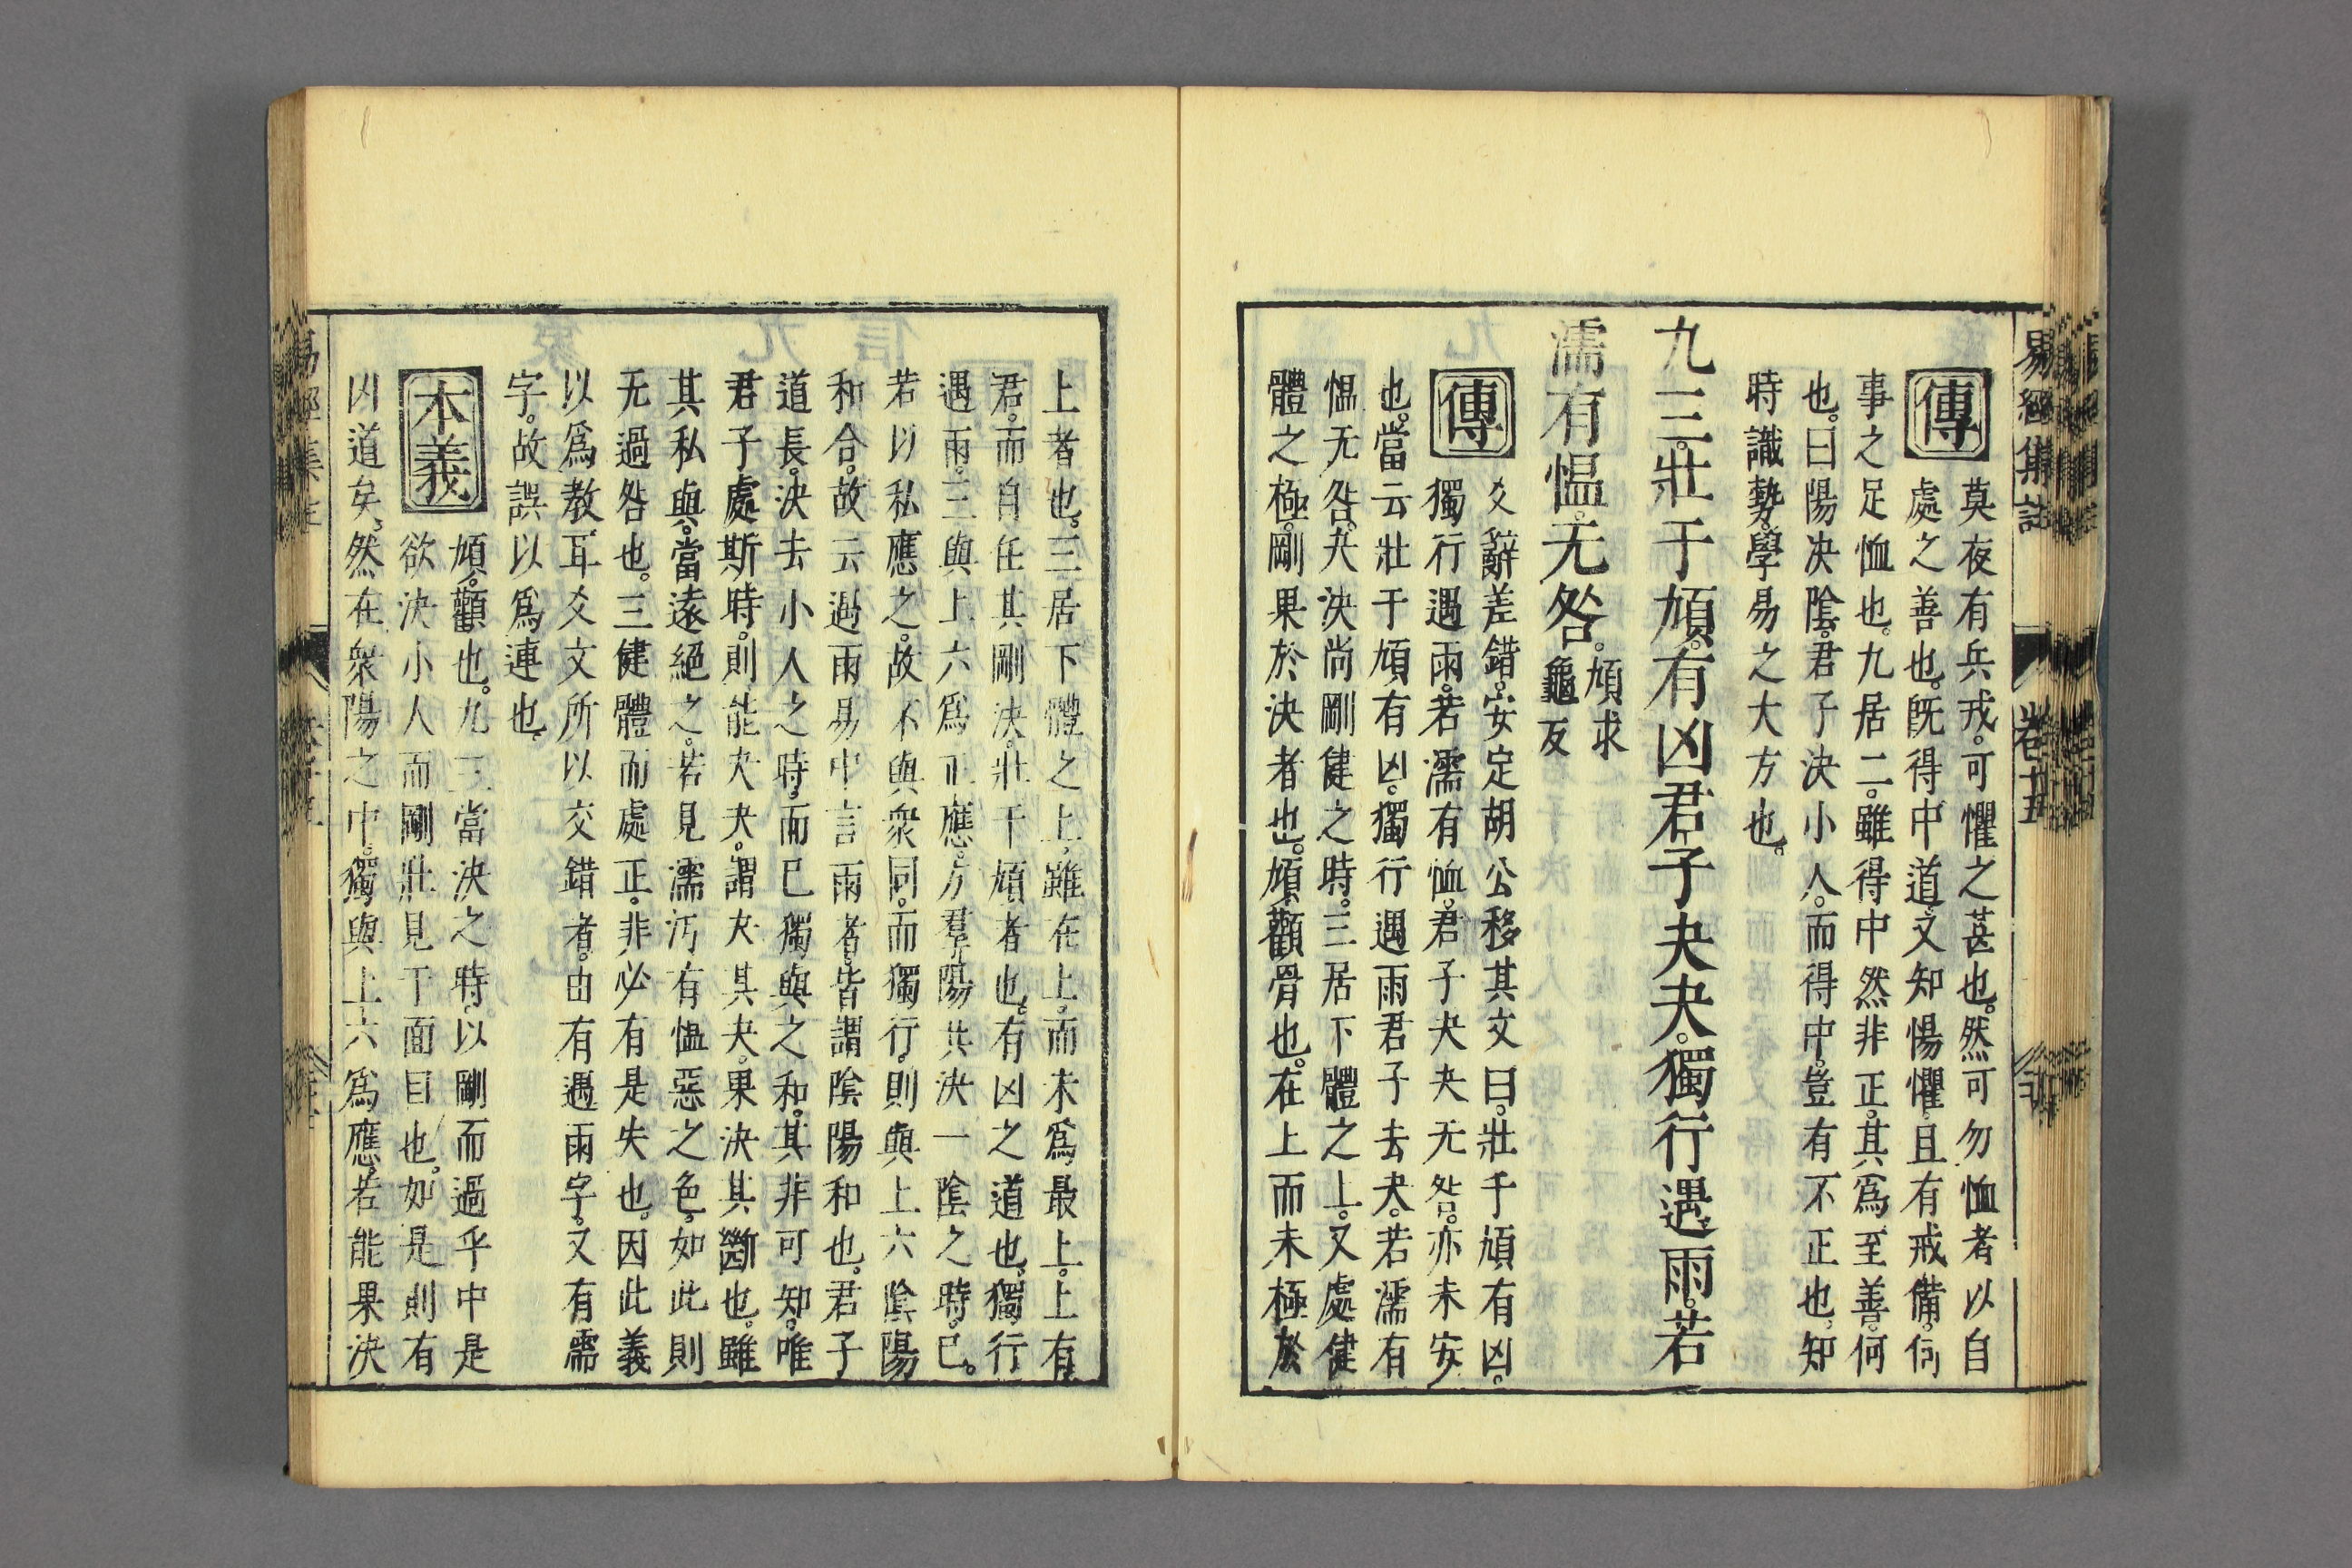 易經集註 卷十五
傳 莫夜有兵戎。可懼之甚也。然可勿恤者以自
處之善也。旣得中道。又知惕懼。且有戒備。何
事之足恤也。九居二。雖得中然非正。其爲至善。何
也。曰陽决陰。君子決小人。而得中。豈有不正也。知
時識勢。學易之大方也。
九三。壯于頄。有凶君子夬夬。獨行遇雨。若
濡有愠。无咎。
頄求
龜反
傳 爻辭差錯。安定胡公移其文曰。壯于頄有凶。
獨行遇雨。若濡有恤。君子夬夬无咎。亦未安
也。當云壯于頄有凶。獨行遇雨君子去夬。若濡有
愠无咎。夬決尚剛健之時。三居下體之上。又處健
體之極。剛果於決者也。頄。顴骨也。在上而未極於
上者也。三居下體之上。雖在上。而未爲最上。上有
君。而自任其剛決。壯于頄者也。有凶之道也。獨行
遇雨。三與上六爲正應。方羣陽共決一陰之時。已。
若以私應之。故不與衆同。而獨行。則與上六陰陽
和合。故云遇雨易中言雨者。皆謂陰陽和也。君子
道長。決去小人之時。而已獨與之和。其非可知。唯
君子處斯時。則能夬夬。謂夬其夬。果決其斷也。雖
其私與。當遠絕之。若見濡汚有愠惡之色。如此則
无過咎也。三健體而處正。非必有是失也。因此義
以爲教耳爻文所以交錯者。由有遇雨字。又有濡
字。故誤以爲連也。
本義 頄。顴也。九三當決之時。以剛而過乎中是
欲決小人而剛壯見于面目也。如是則有
凶道矣。然在衆陽之中。獨與上六爲應。若能果決
易經集註